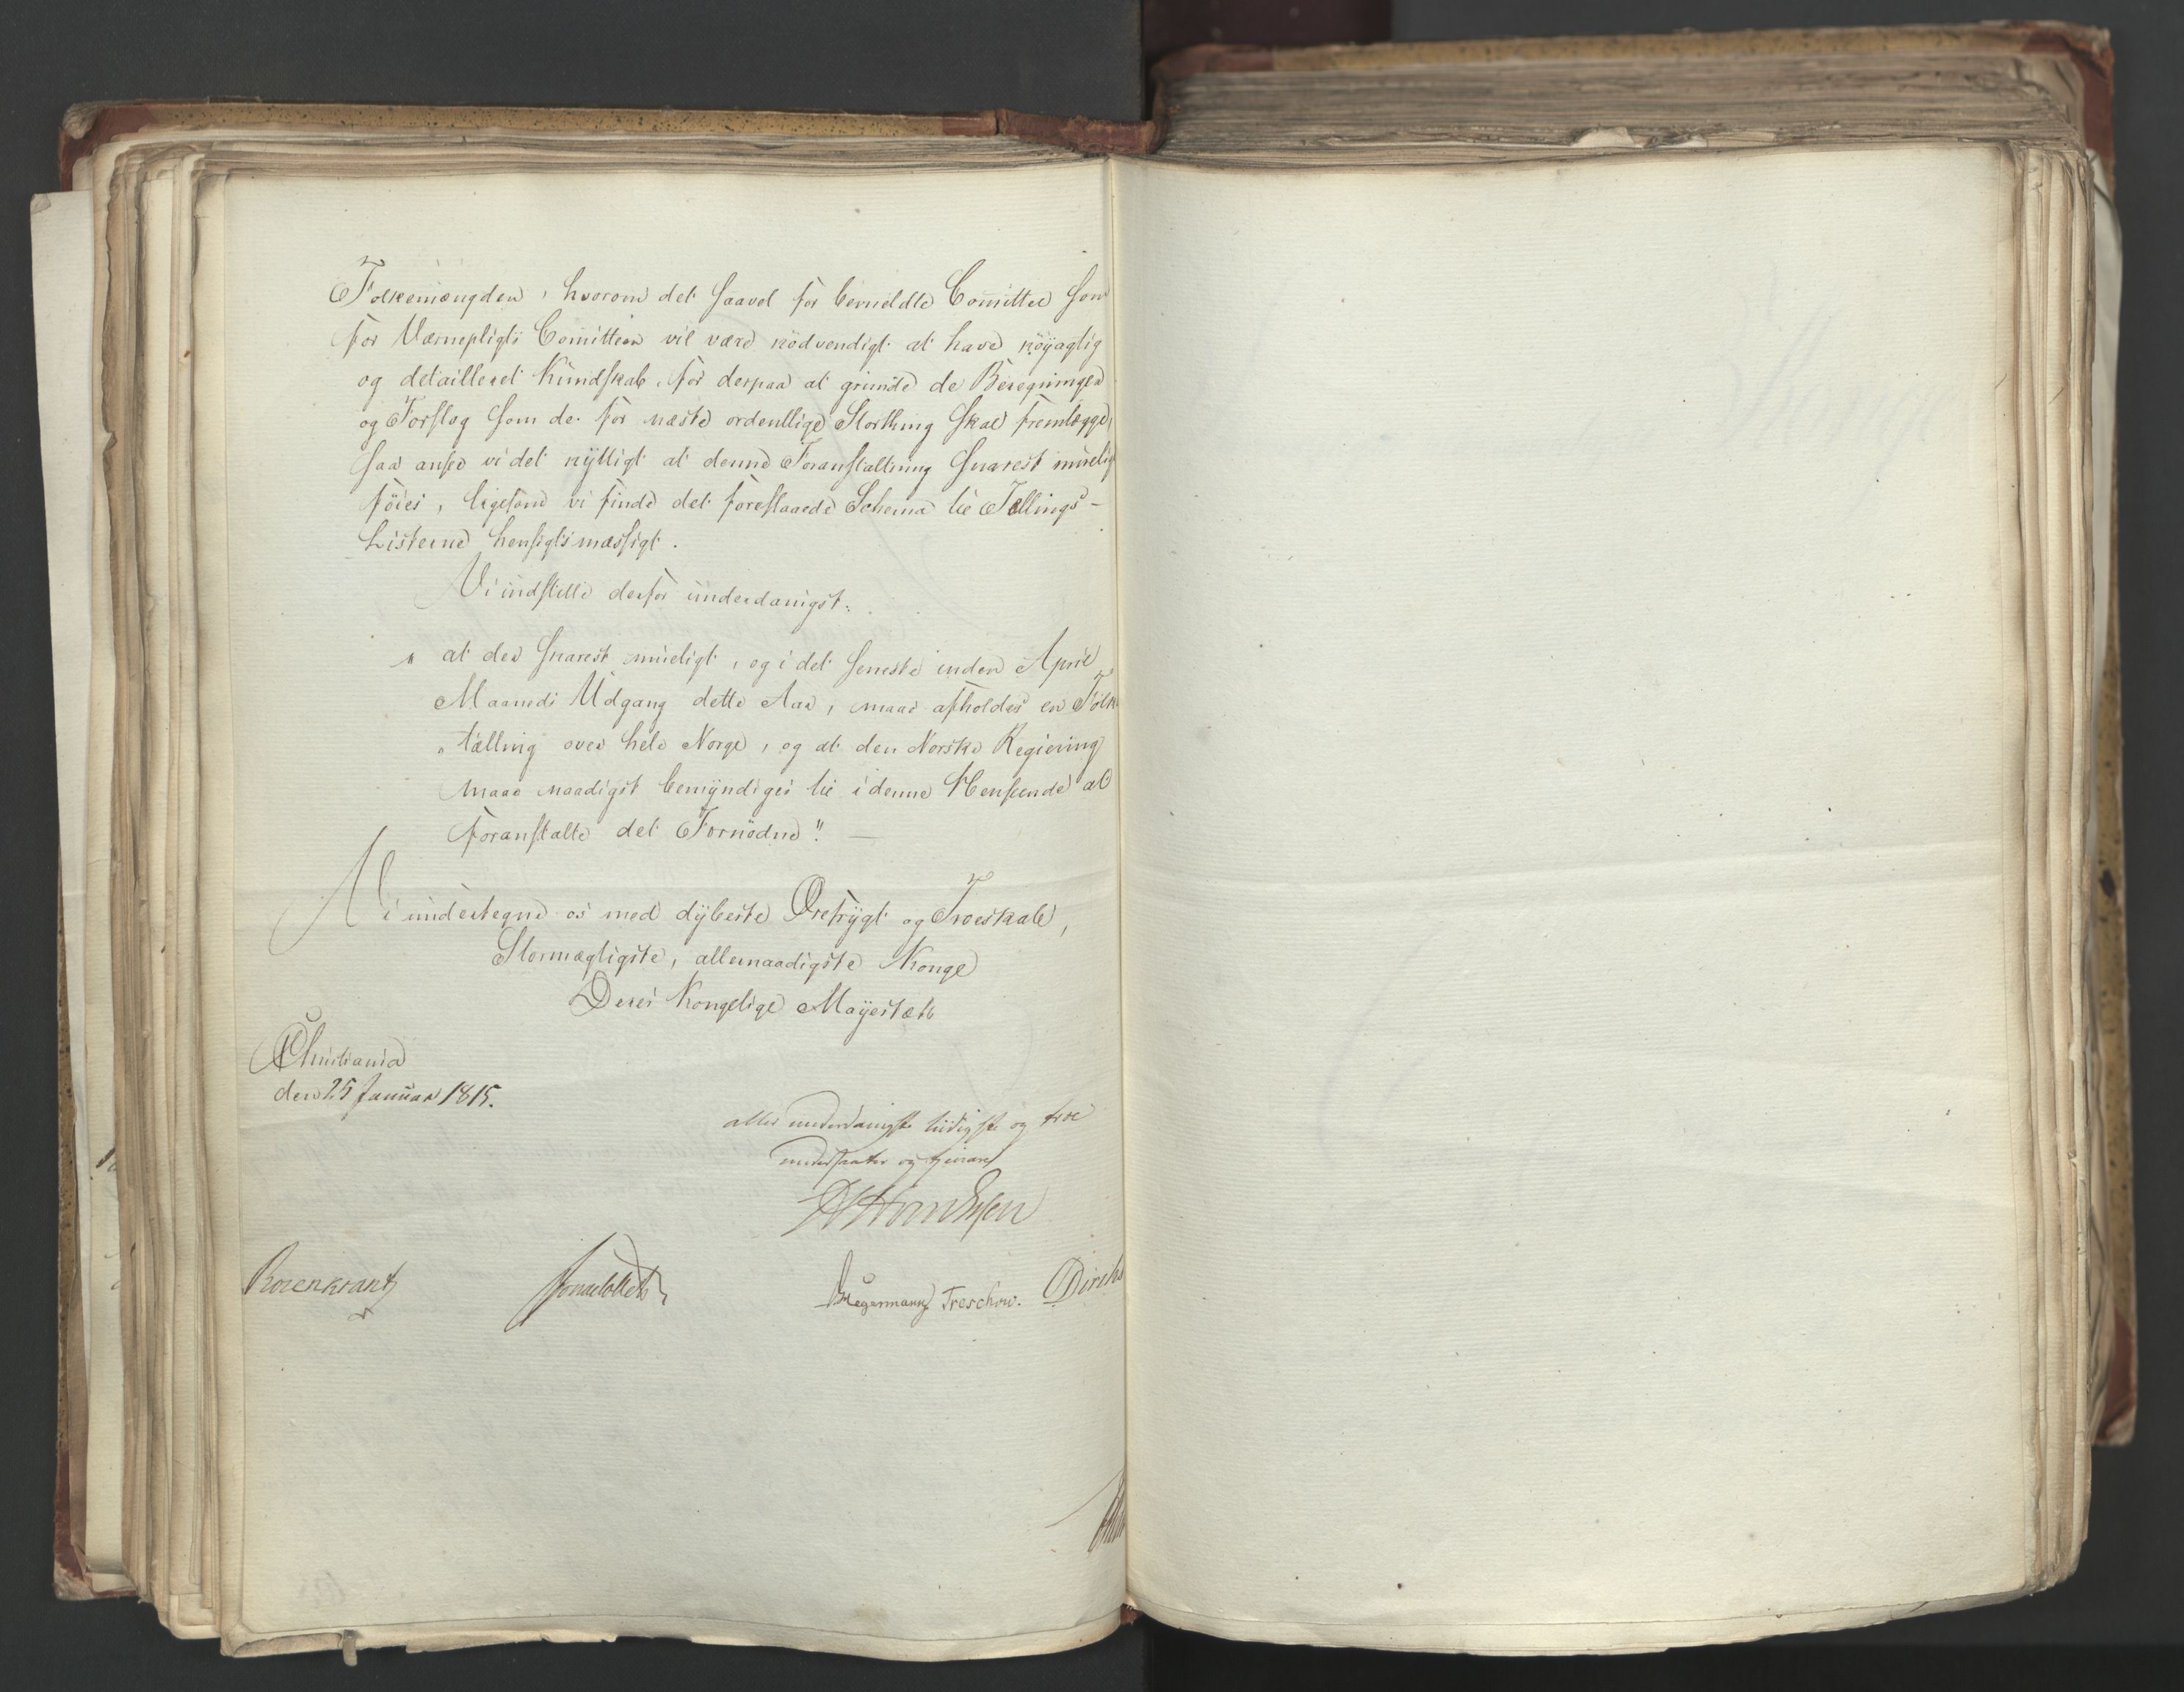 Folkemængden, hvorom det saavel for bemeldte Committee som
for Værnepligts Committeen vil være nödvendigt at have nöyagtig
og detailleret Kundskab, for derpaa at grunde de Beregninger
og Forslag som de for næste ordentlige Storthing skal fremlægge,
saa ansee vi det nyttigt at denne Foranstaltning snarest muelig
föies, ligesom vi finde det foreslaaede Schema til Tellings-
Listerne hensigtsmæssigt.
Vi indstille derfor underdanigst:
" at der snarest mueligt, og i det seneste inden April
Maaneds Udgang dette Aar, maae afholdes en Folke
" tælling over hele Norge, og at den Norske Regiering
maae naadigst bemyndiges til i denne Henseende at
foranstalte det Fornödne". —
Vi undertegne os med dybeste Ærefrygt og Troeskab,
Stormægtigste, allernaadigste Konge
Deres Kongelige Mayestæts
Christiania
den 25 Januar 1815.
aller underdanigste lydigste og troe
undersaatter og tjenere
Rosenkrantz
Sommerfeldt
Hegermann
Treschow.